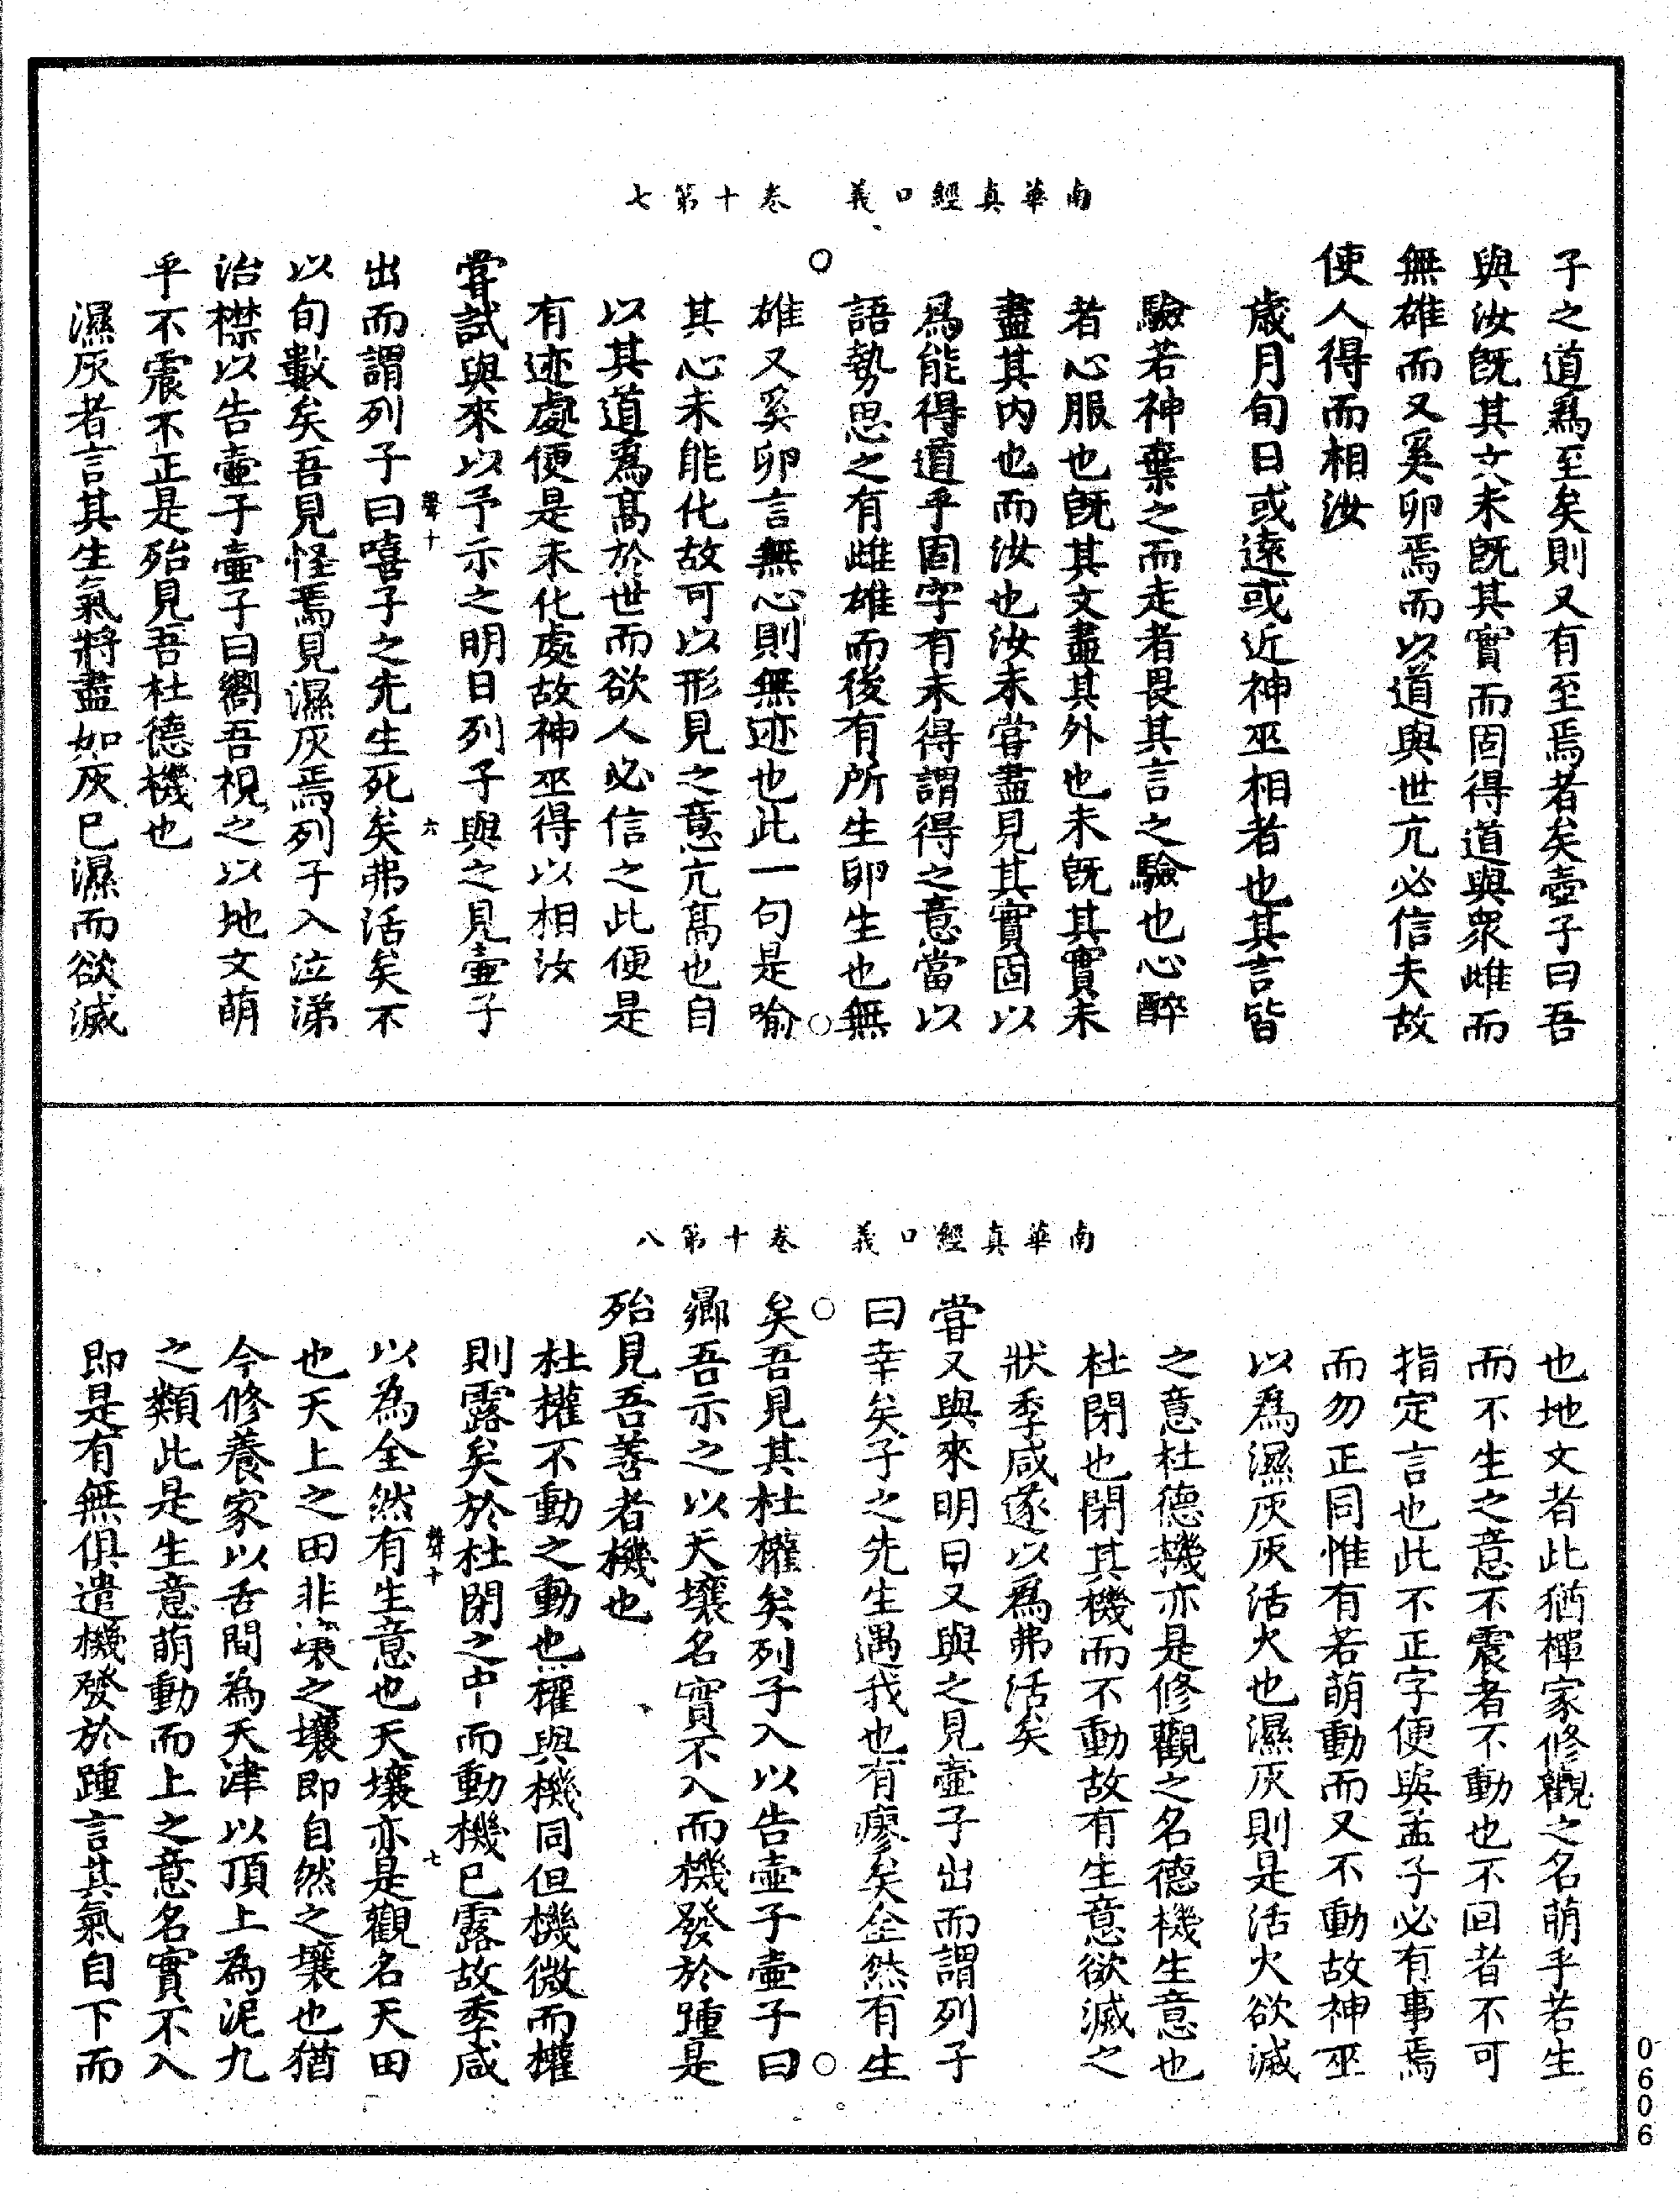 南華真經口義　卷十第七
子之道爲至矣則又有至焉者矣壺子曰吾
與汝旣其文未旣其實而固得道與衆雌而
無雄而又奚卵焉而以道與世亢必信夫故
使人得而相汝
歲月旬日或遠或近神巫相者也其言皆
驗若神棄之而走者畏其言之驗也心醉
者心服也旣其文盡其外也未旣其實未
盡其内也而汝也汝未嘗盡見其實固以
爲能得道乎固字有未得謂得之意當以
語勢思之有雌雄而後有所生卵生也無
雄又奚卵言無心則無迹也此一句是喻
其心未能化故可以形見之意亢髙也自
以其道爲髙於世而欲人必信之此便是
有迹處便是未化處故神巫得以相汝
嘗試與來以予示之明日列子與之見壺子
出而謂列子曰嘻子之先生死矣弗活矣不
聲十　六
以旬數矣吾見怪焉見濕灰焉列子入泣涕
沾襟以告壺子壺子曰嚮吾視之以地文萌
乎不震不正是殆見吾杜德機也
濕灰者言其生氣將盡如灰已濕而欲滅
南華真經口義　卷十第八
也地文者此猶禪家修觀之名萌乎若生
而不生之意不震者不動也不回者不可
指定言也此不正字便與孟子必有事焉
而勿正同惟有若萌動而又不動故神巫
以爲濕灰灰活火也濕灰則是活火欲滅
之意杜德機亦是修觀之名德機生意也
杜閉也閉其機而不動故有生意欲滅之
狀季咸遂以爲弗活矣
嘗又與來明日又與之見壺子出而謂列子
曰幸矣子之先生遇我也有瘳矣全然有生
矣吾見其杜權矣列子入以告壺子壺子曰
鄉吾示之以天壤名實不入而機發於踵是
殆見吾善者機也
杜權不動之動也權與機同但機微而權
則露矣於杜閉之中而動機已露故季咸
以為全然有生意也天壤亦是觀名天田
聲十　七
也天上之田非壤之壤即自然之壤也猶
今修養家以舌間為天津以頂上為泥九
之類此是生意萌動而上之意名實不入
即是有無俱遣機發於踵言其氣自下而
0606